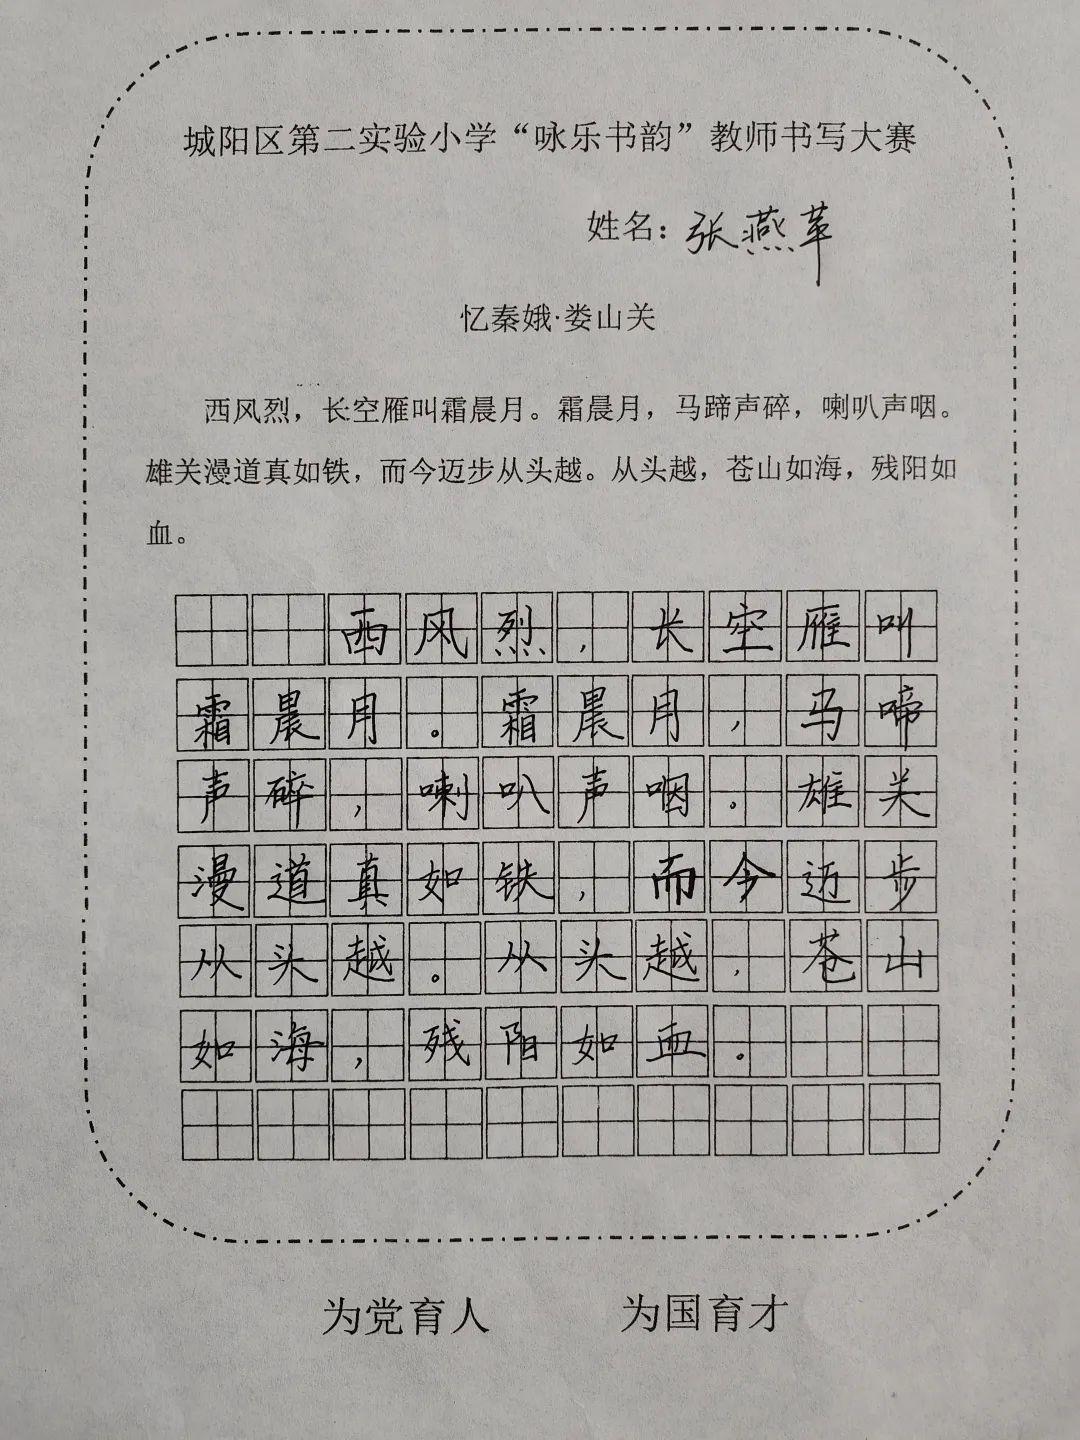 城阳区第二实验小学“咏乐书韵”教师书写大赛
姓名：张燕苹
忆秦娥·娄山关
西风烈，长空雁叫霜晨月。霜晨月，马蹄声碎，喇叭声咽。
雄关漫道真如铁，而今迈步从头越。从头越，苍山如海，残阳如
血。
西风烈，长空雁叫
霜晨月。霜晨月，马啼
声碎，喇叭声咽。雄关
漫道真如铁，而今迈步
从头越。从头越，苍山
如海，残阳如血。
为党育人 为国育才